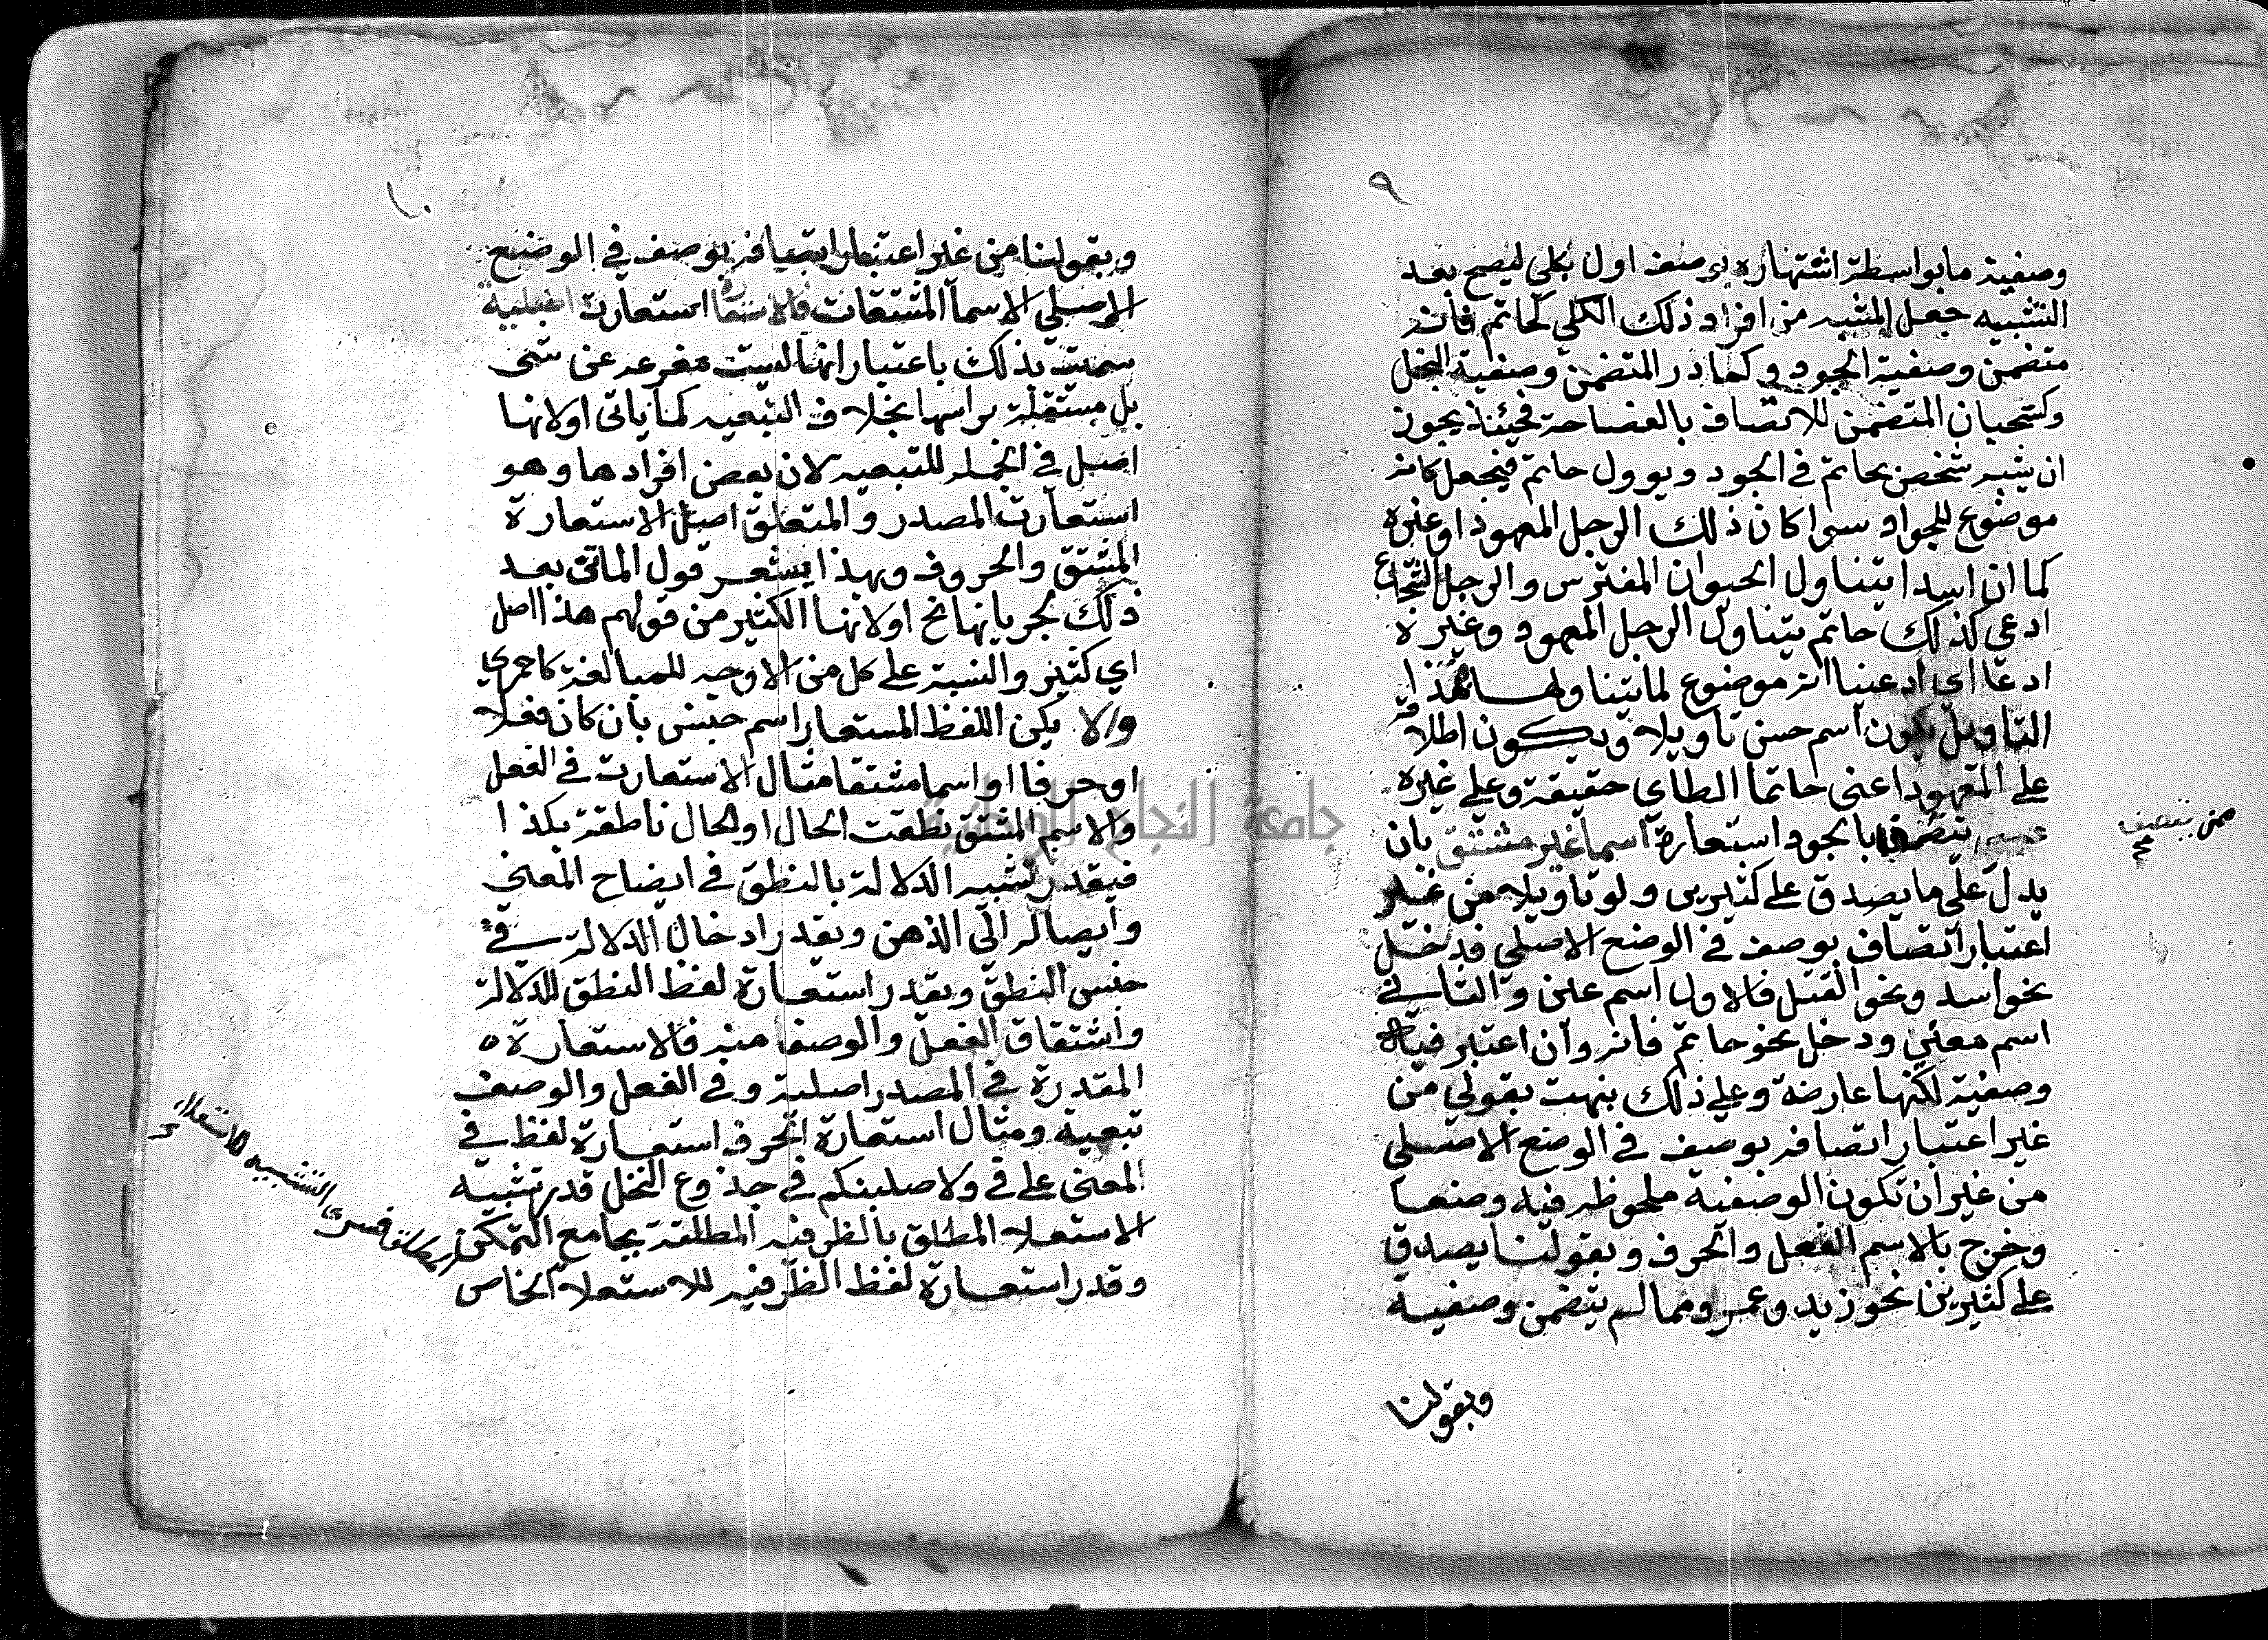 ٩
وصفية ما بواسطة اشتهاره بوصف اول بكلي ليصح بعد
التشبيه جعل المشبه من افراد ذلك الكلي كحاتم فانه
متضمن وصفية الجود وكمادر المتضمن وصفية البخل
وكسحبان المتضمن للاتصاف بالفصاحة فحينئذ يجوز
ان يشبه شخص بحاتم في الجود ويوول حاتم فيجعل كانه
موضوع للجواد سوا كان ذلك الرجل المعهود او غيره
كما ان اسدا يتناول الحيوان المفترس والرجل الشجاع
ادعى كذلك حاتم يتناول الرجل المعهود وغيره
ادعا اي ادعينا انه موضوع لما يتناولهما فهذا
التاويل يكون اسم جنس تاويلا ويكون اطلاقه
على المعهود اعني حاتما الطاي حقيقة وعلى غيره
ممن يتصف بالجود استعارة اسما غير مشتق بان
ممن يتصف صح
يدل على ما يصدق على كثيرين ولو تاويلا من غير
اعتبار اتصاف بوصف في الوضع الاصلي فدخل
نحو اسد ونحو القتل فالاول اسم عين والثاني
اسم معنى ودخل نحو حاتم فانه وان اعتبر فيه
وصفية لكنها عارضة وعلى ذلك نبهت بقولي من
غير اعتبار اتصافه بوصف في الوضع الاصلي
من غير ان تكون الوصفية ملحوظه فيه وضعا
وخرج بالاسم الفعل والحرف وبقولنا يصدق
على كثيرين نحو زيد وعمرو مما لم يتضمن وصفيه
وبقولنا
١٠
وبقولنا من غير اعتبار اتصافه بوصف في الوضع
الاصلي الاسما المشتقات فالاستعاره استعارت اصلية
سميت بذلك باعتبار انها ليست مفرعه عن شى
بل مستقلة براسها بخلاف التبعيه كما ياتى اولانها
اصل في الجمله للتبعيه لان بعض افرادها وهو
استعارت المصدر والمتعلق اصل الاستعارة
المشتق والحروف وبهذا يشعر قول الماتن بعد
ذلك لجريانها نح اولانها الكثير من قولهم هذا اصل
اي كثير والنسبة على كل من الاوجه للمبالغة كاحمري
والا يكن اللفظ المستعار اسم جنس بان كان فعلا
اوحرفا او اسما مشتقا مثال الاستعارت في الفعل
والاسم المشتق نطقت الحال او الحال ناطقة بكذا
فيقدر تشبيه الدلالة بالنطق في ايضاح المعنى
وايصاله الى الذهن ويقدر ادخال الدلالة في
جنس النطق ويقدر استعارة لفظ النطق للدلالة
واشتقاق الفعل والوصف منه فالاستعارة ه
المقدرة في المصدر اصلية وفي الفعل والوصف
تبعية ومثال استعارة الحرف استعارة لفظ في
لمعنى على في ولاصلبنكم في جذوع النخل قدر تشبيه
الاستعلا المطلق بالظرفيه المطلقة بجامع التمكن
المطلق فسرى التشبيه للاستعلا
وقدر استعارة لفظ الظرفيه للاستعلا الخاص
جامعة النجاح الوطنية